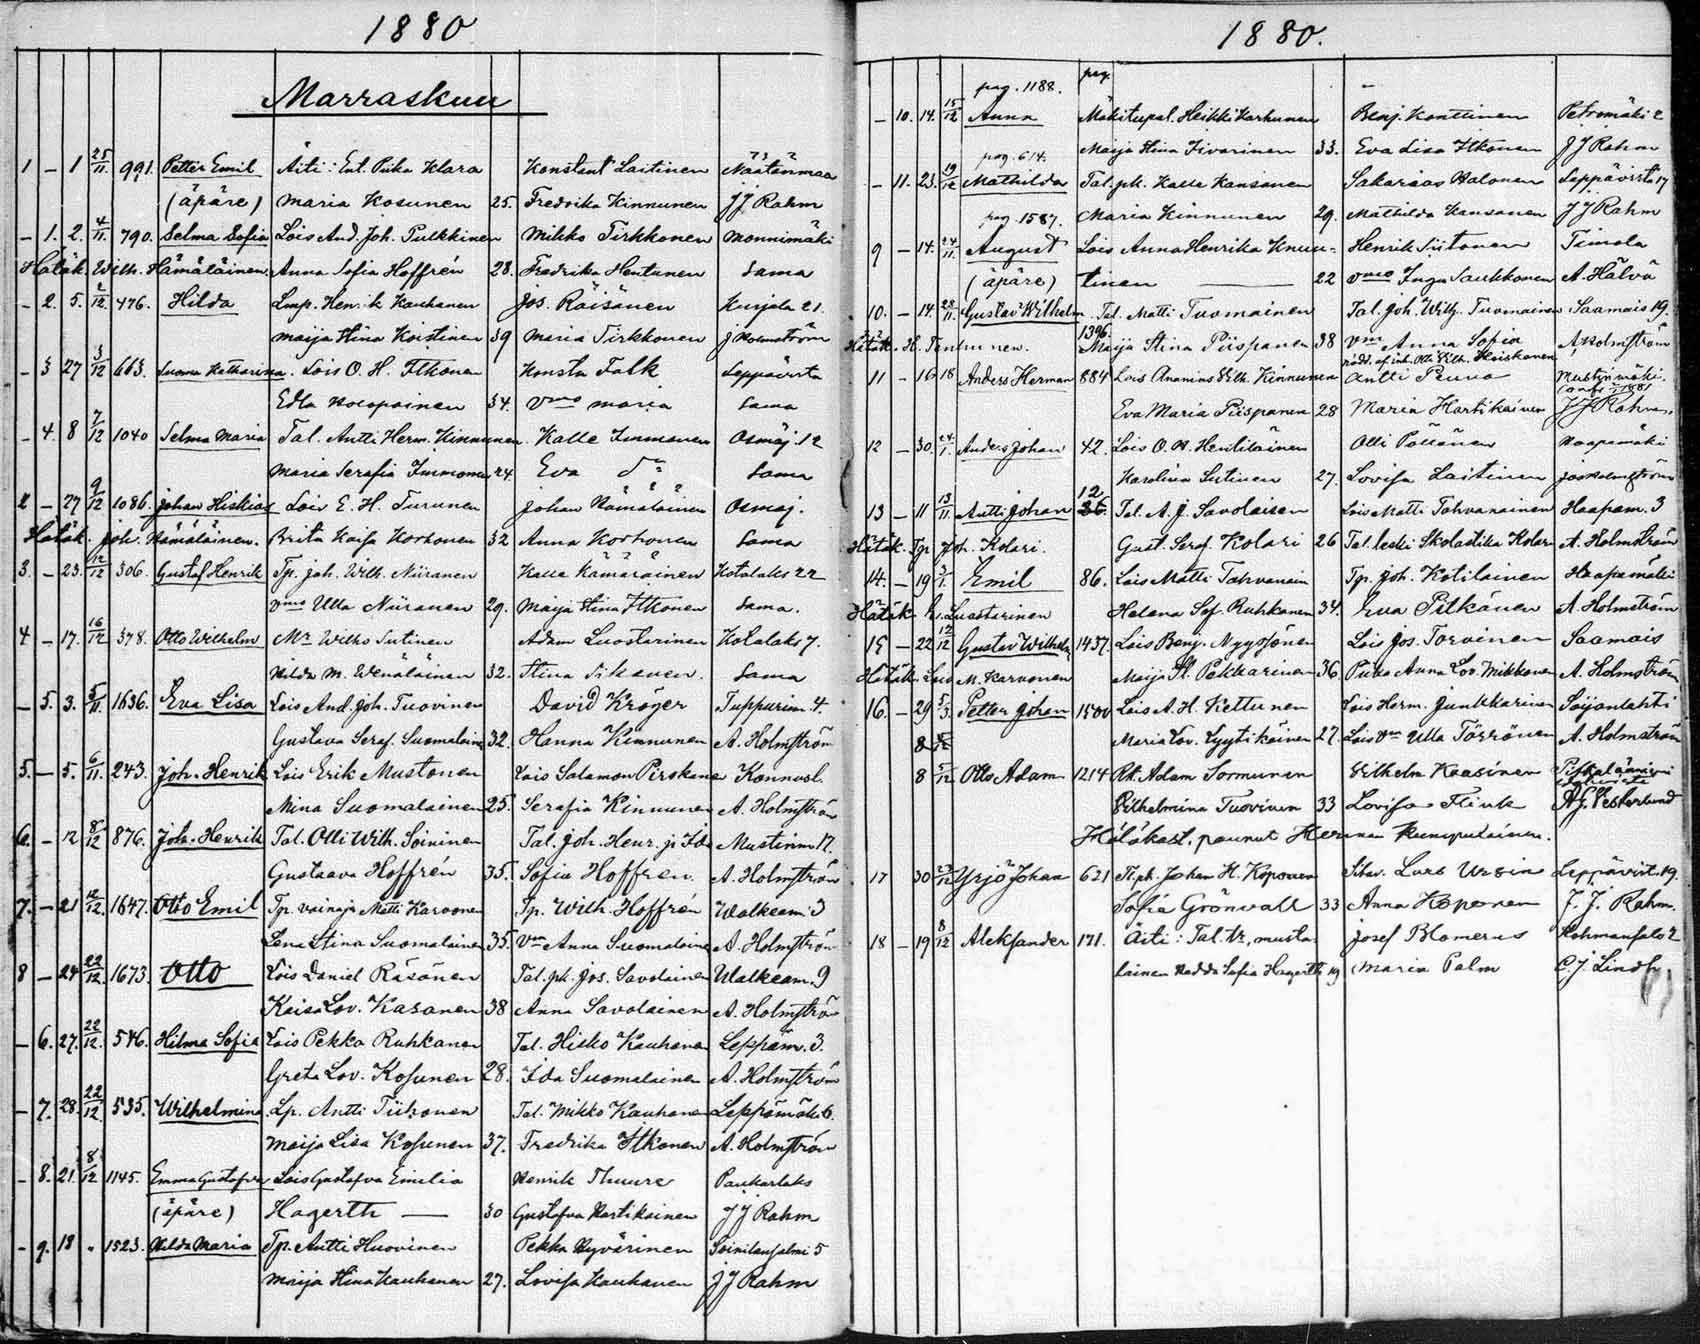 1880
Marraskuu
1 – 1 25/11 991. Petter Emil Äiti: Ent. Piika Klara Konstant Laitinen Näätänmaa
(äpäre) Maria Kosunen 25. Fredrika Kinnunen JJ Rahm
– 1. 2. 4/11 790. Selma Sofia Lois And. Joh. Pulkkinen Mikko Tirkkonen Monnimäki
Hätäk. Wilh. Hämäläinen. Anna Sofia Hoffrén 28. Fredrika Hentunen Sama
– 2. 5. 2/12 476. Hilda Lmp. Hen. k Kauhanen Jos. Räisänen Kurjala 21.
Maija Stina Koistinen 39 Maria Tirkkonen J Holmström
– 3 27 3/12 663. Susanna Katharina. Lois O. H. Itkonen Konsta Falk Leppävirta
Edla 34. Vmo Maria Sama
– 4. 8 7/12 1040 Selma Maria Tal. Antti Herm. Kinnunen Kalle Immonen Osmäj. 12
Maria Serafia Immonen 24. Eva do Sama
2 – 27 9/12 1086. Johan Hiskias Lois E. H. Turunen Johan Hämäläinen Osmaj.
Hätäk. Joh. Hämäläinen. Brita Kaisa Korhonen 32 Anna Korhonen Sama
3. – 23. 12/12 306. Gustaf Henrik Tp. Joh. Wilh. Niiranen Kalle Kämäräinen Kotalaks 22
vmo Ulla Niiranen 29. Maija Stina Itkonen Sama.
4 – 17. 16/12 378. Otto Wilhelm Mr Wilho Sutinen Adam Luostarinen Kotalaks 7.
Hilda M. Wenäläinen 32. Stina Sikanen. Sama
– 5. 3. 5/11. 1636. Eva Lisa Lois And. Joh. Tuovinen David Kröger Tuppurinm. 4.
Gustava Seraf. Suomalainen 32. Hanna Kinnunen A. Holmström
5. – 5. 6/11. 243. Joh. Henrik Lois Erik Mustonen Lois Salamon Pirskanen Konnusl.
Mina Suomalainen 25. Serafia Kinnunen A. Holmström
6. – 12 8/12 876. Joh. Henrik Tal. Olli Wilh. Soininen Tal. Joh. Henr. ja Ida Mustinm 17.
Gustaava Hoffrén 35. Sofia Hoffren. A. Holmström
7. – 21 12/12. 1647. Otto Emil Tp. vainaja Matti Karvonen Tp. Wilh. Hoffrén Walkeam. 3
Lena Stina Suomalainen 35. Vm Anna Suomalainen A. Holmström
8 – 24 22/12. 1673. Otto Lois Daniel Räsänen Tal. pk. Jos. Savolainen Walkeam. 9
Kaisa Lov. Kasanen 38 Anna Savolainen A. Holmström
– 6. 27. 22/12. 546. Hilma Sofia Lois Pekka Ruhkanen Tal. Hisko Kauhanen Leppäm. 3.
Greta Lov. Kosunen 28. Ida Suomalainen A. Holmström
– 7. 28. 22/12. 535. Wilhelmina Lp. Antti Tiihonen Tal. Mikko Kauhanen Leppämäki 6.
Maija Lisa Kosunen 37. Fredrika Itkonen A. Holmström
– 8. 21. 8/12 1145. Emma Gustafva Lois Gustafva Emilia Henrik Thuure Paukarlaks
(äpäre) Hagerth — 30 Gustafva Hartikainen JJ Rahm
– 9. 18 " 1523. Hilda Maria Tp. Antti Huovinen Pekka Hyvärinen Soinilansalmi 5
Maija Stina Kauhanen 27. Lovisa Kauhanen JJ Rahm
1880.
pag. 1188. pag.
– 10. 14. 15/12 Anna Mäkitupal. Heikki Karhunen Benj. Konttinen Petromäki 2
Maija Stina Sivarinen 33. Eva Lisa Itkonen JJ Rahm
pag. 614.
– 11. 23. 19/12 Mathilda Tal. pk. Kalle Kansanen Sakarias Halonen Leppävirta 17
pag. 1587. Maria Kinnunen 29. Mathilda Kansanen JJ Rahm
9 – 14. 24/11. August Lois Anna Henrika Knuu- Henrik Siitonen Timola
(äpäre) tinen — 22 vmo Inga Saukkonen A. Hälvä
10. – 14. 28/11. Gustav Wilhelm. Tal. Matti Tuomainen Tal. Joh. Wilh. Tuomainen Saamais 19.
Hätäk. H. Tenhunen. 1396. Maija Stina Piispanen 38 Vm Anna Sofia A. Holmström
11 – 16 18 Anders Herman 884 Lois Ananias Vilh. Kinnunen Antti Peura Mustinmäki.
Eva Maria Piispanen 28 Maria Hartikainen JJ Rahm.
12 – 30. 24/1. Anders Johan 42. Lois O. H. Hentiläinen Olli Pöllänen Haapamäki
Karolina Sutinen 27. Lovisa Laitinen
13 – 11 13/11. Antti Johan 12 36. Tal. A. J. Savolaisen Lois Matti Tahvanainen Haapam. 3
Hätäk. Tp. Joh. Kolari. Gust. Seraf. Kolari 26 Tal. leski Skolastika Kolari A. Holmström
14. – 19 3/1. Emil 86. Lois Matti Tahvanain Tp. Joh. Kotilainen Haapamäki
Hätäk. Luostarinen Helena Sof. Ruhkanen 34. Eva Pitkänen A. Holmström
15 – 22 12/12 Gustav Wilhelm 1437. Lois Benj. Nyyssönen Lois Jos. Torvinen Saamais
Hätäk. M. Karvonen Maija St. Pekkarinen 36. Piika Anna Lov. Mikkonen A. Holmström
16. – 29 5/3. Petter Johan 1500 Lois A. H. Kettunen Lois Herm. Junkkarinen Soijonlahti
8 Maria Lov. Lyytikäinen 27. Lois Vm Ulla Törrönen A. Holmström
8 5/12 Otto Adam 1214 Rt. Adam Sormunen Vilhelm Kaasinen
Vilhelmina Tuovinen 33 Lovisa Flink Aj. Vesterlund
Hätäkast. pannut Herman Kumpulainen.
17 30 23/12 Yrjö Johan 621 Tl. pk. Johan H. Koponen Lars Ursin Leppävirt. 19.
Sofia Grönvall 33 Anna Koponen J. J. Rahm.
18 – 19 8/12 Aleksander 171. Äiti: Tal. tr, musta- Josef Blomerus
lainen Hedda Sofia Hagerth 19 Maria Palm C. J. Lindh